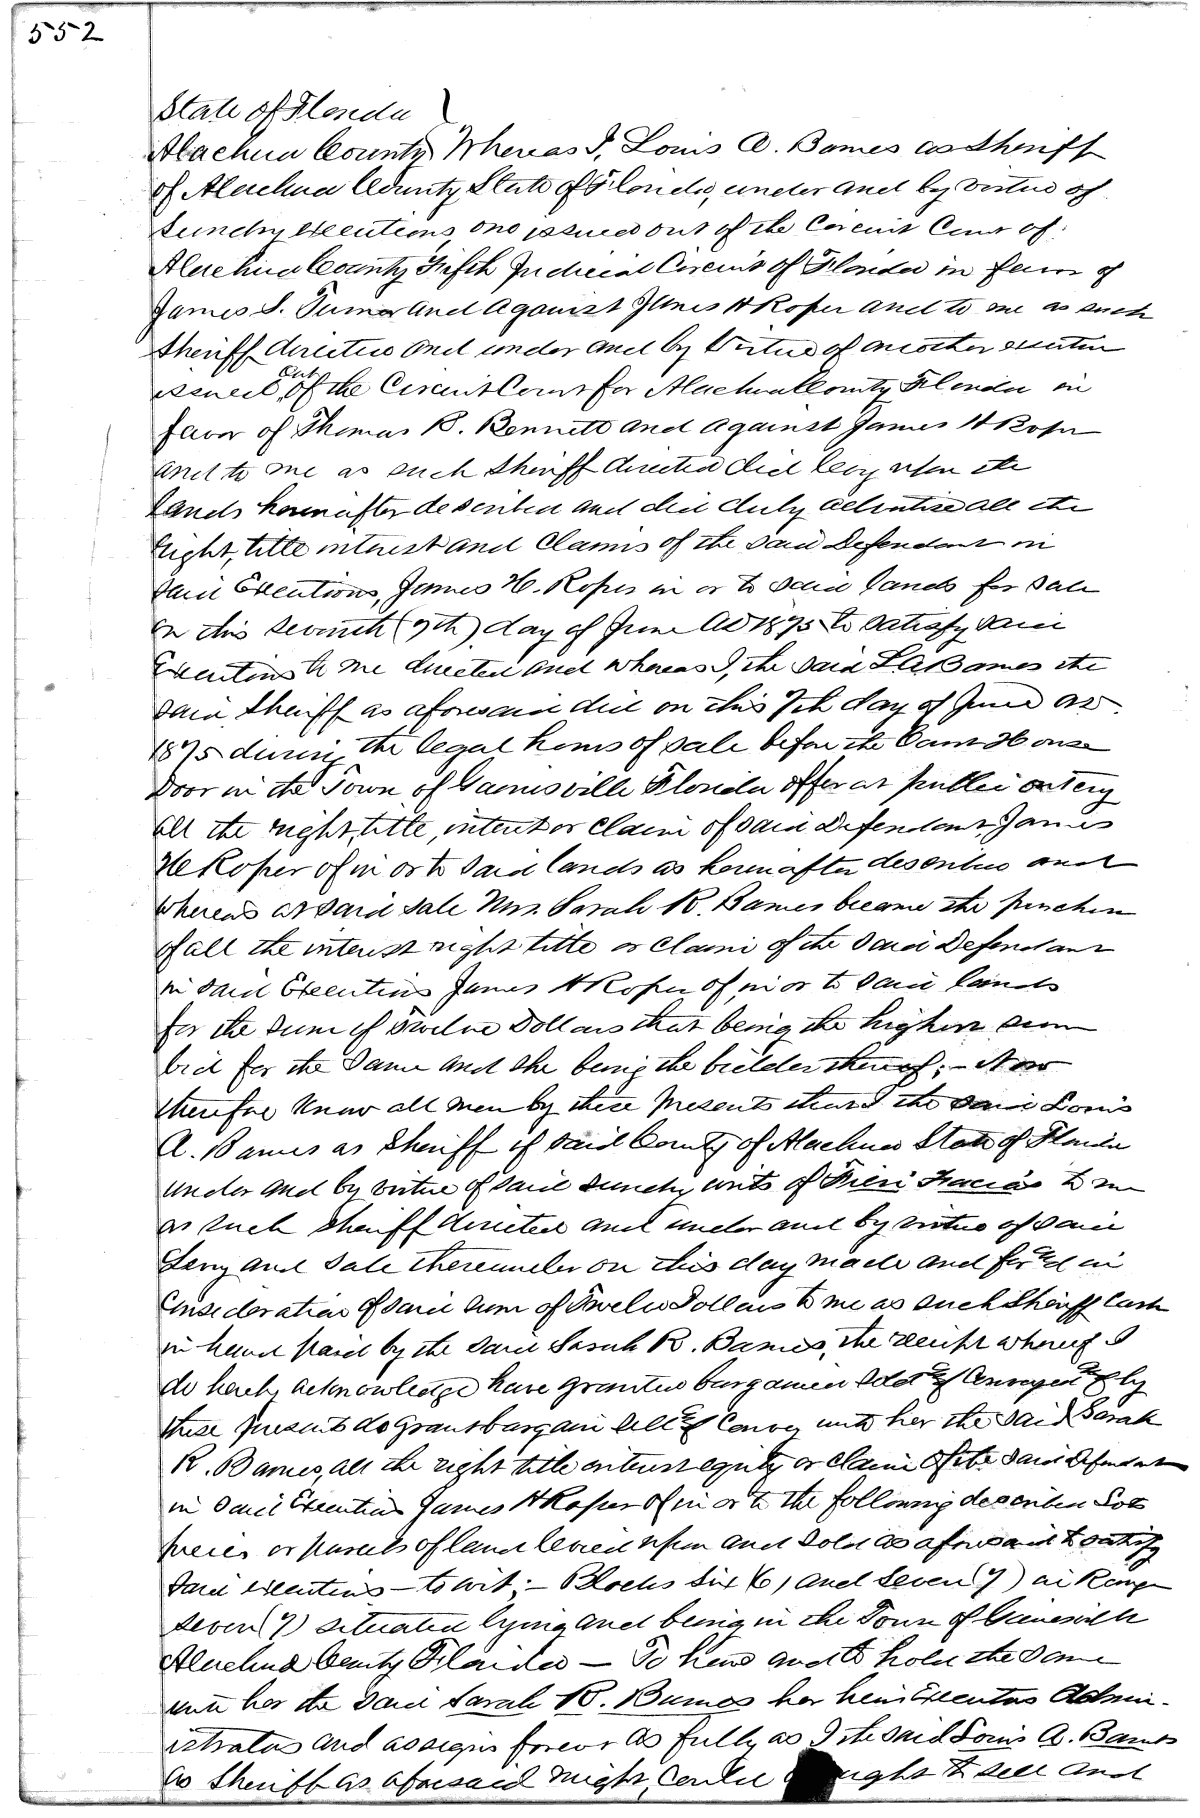 552
State of Florida )
Alachua County ) Whereas I, Louis A. Barnes as Sheriff
of Alachua County State of Florida, under and by virtue of
Sundry executions, one issued out of the Circuit Court of
Alachua County Fifth Judicial Circuit of Florida in favor of
James S. Turner and against James H Roper and to me as such
Sheriff directed and under and by Virtue of another execution
issued Out of the Circuit Court for Alachua County Florida in
favor of Thomas B. Bennett and against James H Roper
and to me as such Sheriff directed did levy upon the
lands hereinafter described and did duly advertise all the
right, title interest and Claims of the said Defendant in
said Executions, James H. Roper in or to said lands for sale
on this seventh (7th) day of June AD 1875 to satisfy said
Executions to me directed and whereas I, the said L.A. Barnes the
said Sheriff as aforesaid did on this 7th day of June AD.
1875 during the legal hours of sale before the Court House
Door in the Town of Gainesville Florida offer at public outcry
all the right, title, interest or claim of said Defendant, James
H Roper of in or to said lands as hereinafter described and
whereas at said sale Mrs. Sarah R. Barnes became the purchaser
of all the interest right title or claim of the said Defendant
in said Executions James H Roper of, in or to said lands
for the sum of Twelve Dollars that being the highest sum
bid for the same and she being the bidder thereof; - Now
therefore Know all men by these presents that I the said Louis
A. Barnes as Sheriff of said County of Alachua State of Florida
under and by virtue of said sundry writs of Fieri Facias to me
as such Sheriff directed and under and by virtue of said
Levy and Sale thereunder on this day made and for & in
Consideration of said sum of Twelve Dollars to me as such Sheriff Cash
in hand paid by the said Sarah R. Barnes, the receipt whereof I
do hereby acknowledge have granted bargained sold & Conveyed & by
these presents do grant bargain sell & Convey unto her the said Sarah
R. Barnes, all the right title interest equity or claim of the said Defendant
in said Executions James H Roper of in or to the following described Lots
pieces or parcels of land levied upon and sold as aforesaid to satisfy
said executions - to wit; - Blocks Six (6) and Seven (7) in Range
seven (7) situated lying and being in the Town of Gainesville
Alachua County Florida — To have and to hold the same
unto her the said Sarah R. Barnes her heirs Executors Admin-
istrators and assigns forever as fully as I the said Louis A. Barnes
as Sheriff as aforesaid might, could ought to sell and